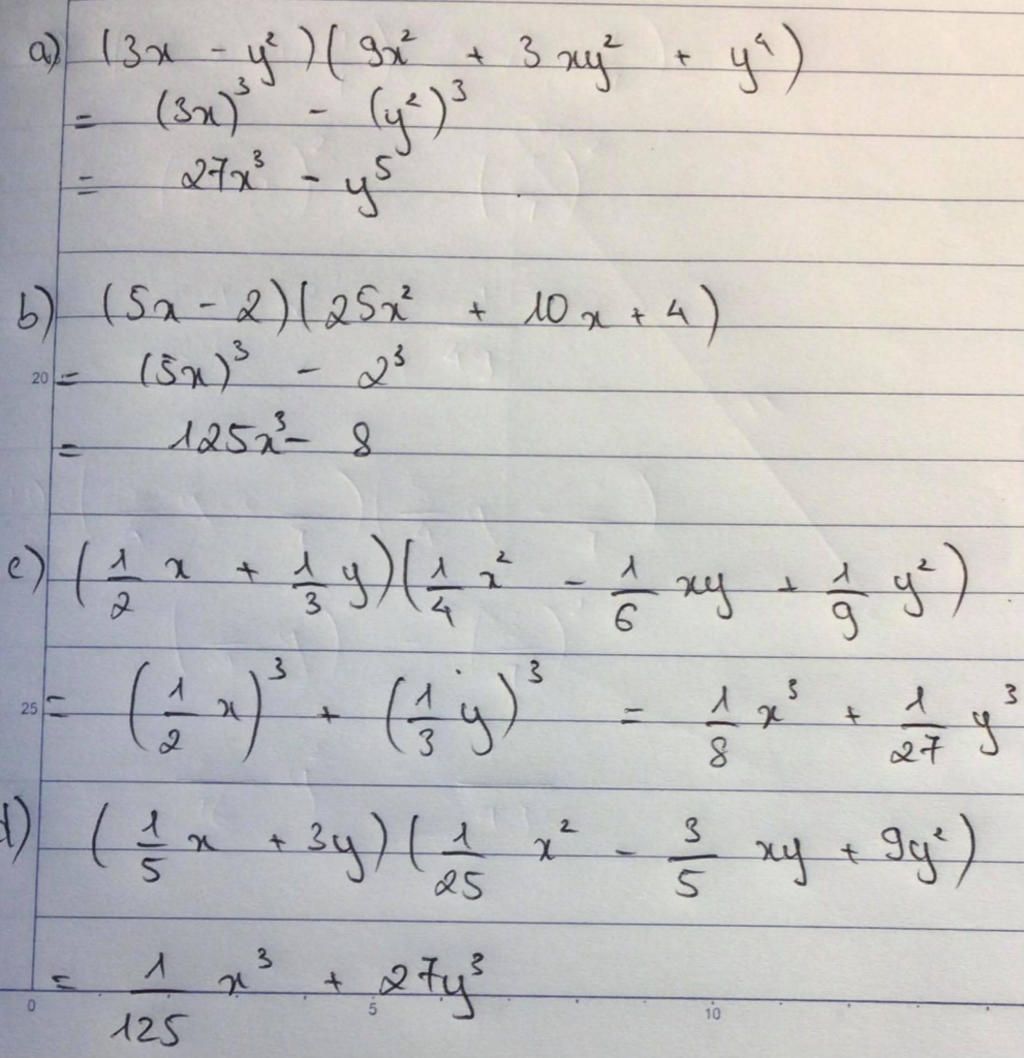 a) (3x - y²)(9x² + 3xy² + y⁴)
= (3x)³ - (y²)³
= 27x³ - y⁵
b) (5x - 2)(25x² + 10x + 4)
20 = (5x)³ - 2³
= 125x³ - 8
c) (1/2 x + 1/3 y)(1/4 x² - 1/6 xy + 1/9 y²)
25 = (1/2 x)³ + (1/3 y)³ = 1/8 x³ + 1/27 y³
d) (1/5 x + 3y)(1/25 x² - 3/5 xy + 9y²)
= 1/125 x³ + 27y³
0 5 10